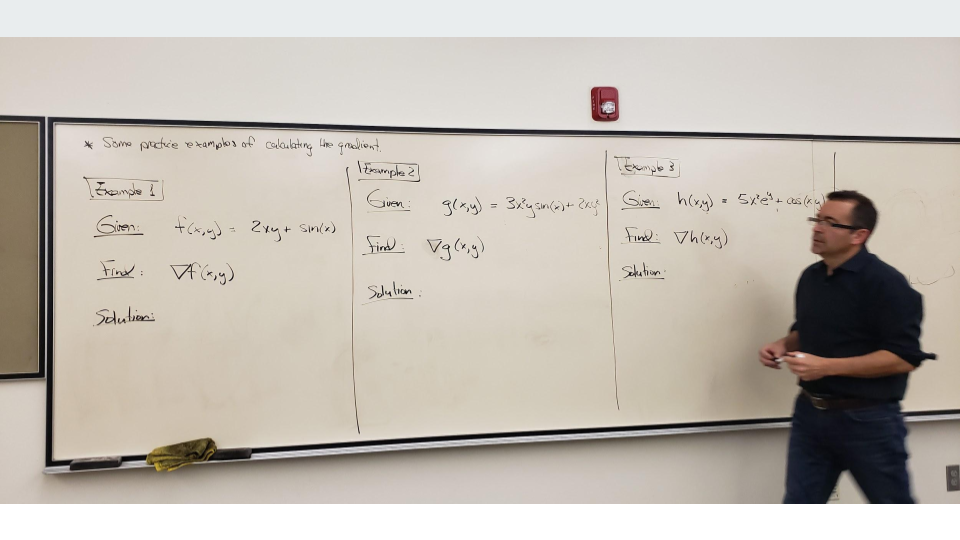 * Some practice examples of calculating the gradient.
Example 1
Given: f(x,y) = 2xy + sin(x)
Find: ∇f(x,y)
Solution:
Example 2
Given: g(x,y) = 3x²y sin(x) + 2xy²
Find: ∇g(x,y)
Solution:
Example 3
Given: h(x,y) = 5x²e^y + cos(xy)
Find: ∇h(x,y)
Solution: